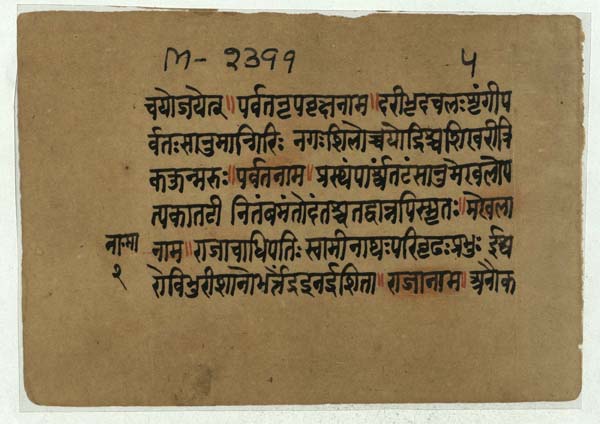 M- २३११
५
चयोजयेत् ॥ पर्वतनृपवृक्षनाम ॥ दरीभृदचलः शृंगीप
र्वतः सानुमान्गिरिः नगः शिलोच्चयोद्रिश्च शिखरीत्रि
ककुन्मरुः ॥ पर्वतनाम ॥ प्रस्थंपार्श्वंतटंसानुमेखलोप
त्यकातटी नितंबमंतोदंतश्च तद्वान्नपिस्मृतः ॥ मेखला
नाम ॥ राजाचाधिपतिः स्वामीनाथः परिवृढः प्रभुः ईश्व
रोविभुरीशानोभर्त्तेंद्रइनईशिता ॥ राजानाम ॥ अनोक
नाममा
२